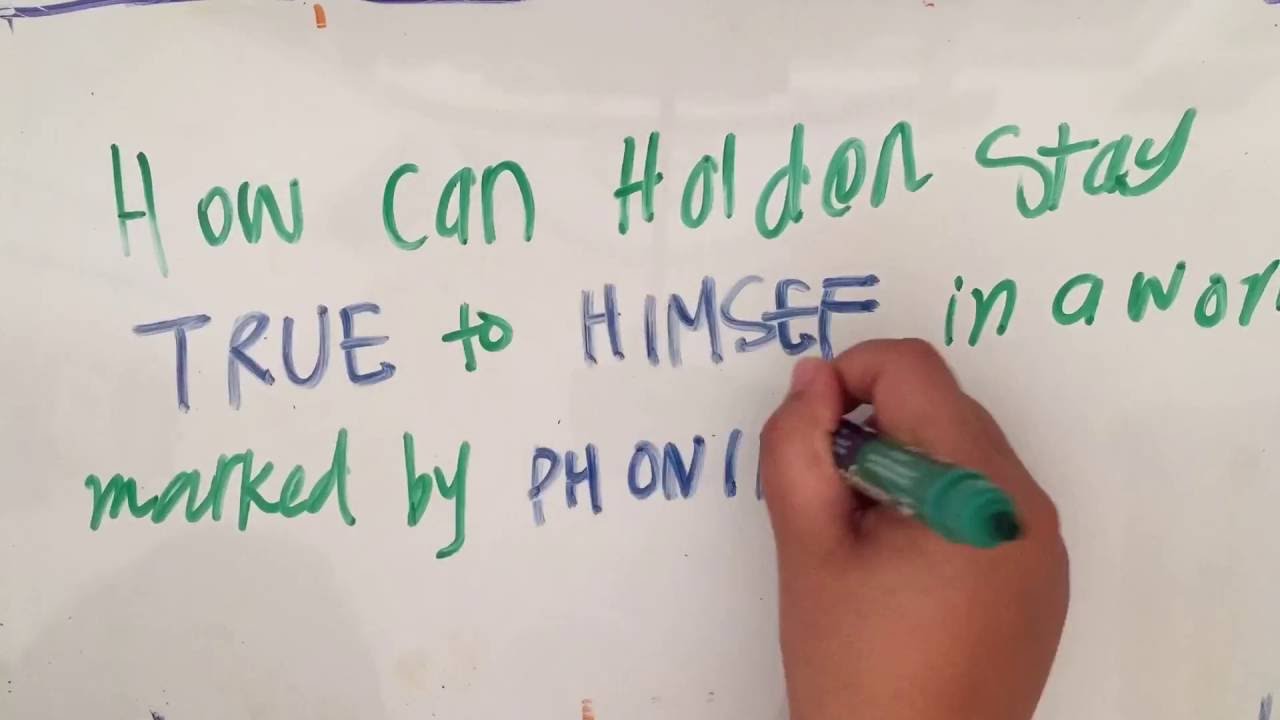 How can Holden stay
TRUE to HIMSEF in a wor
marked by PHONI